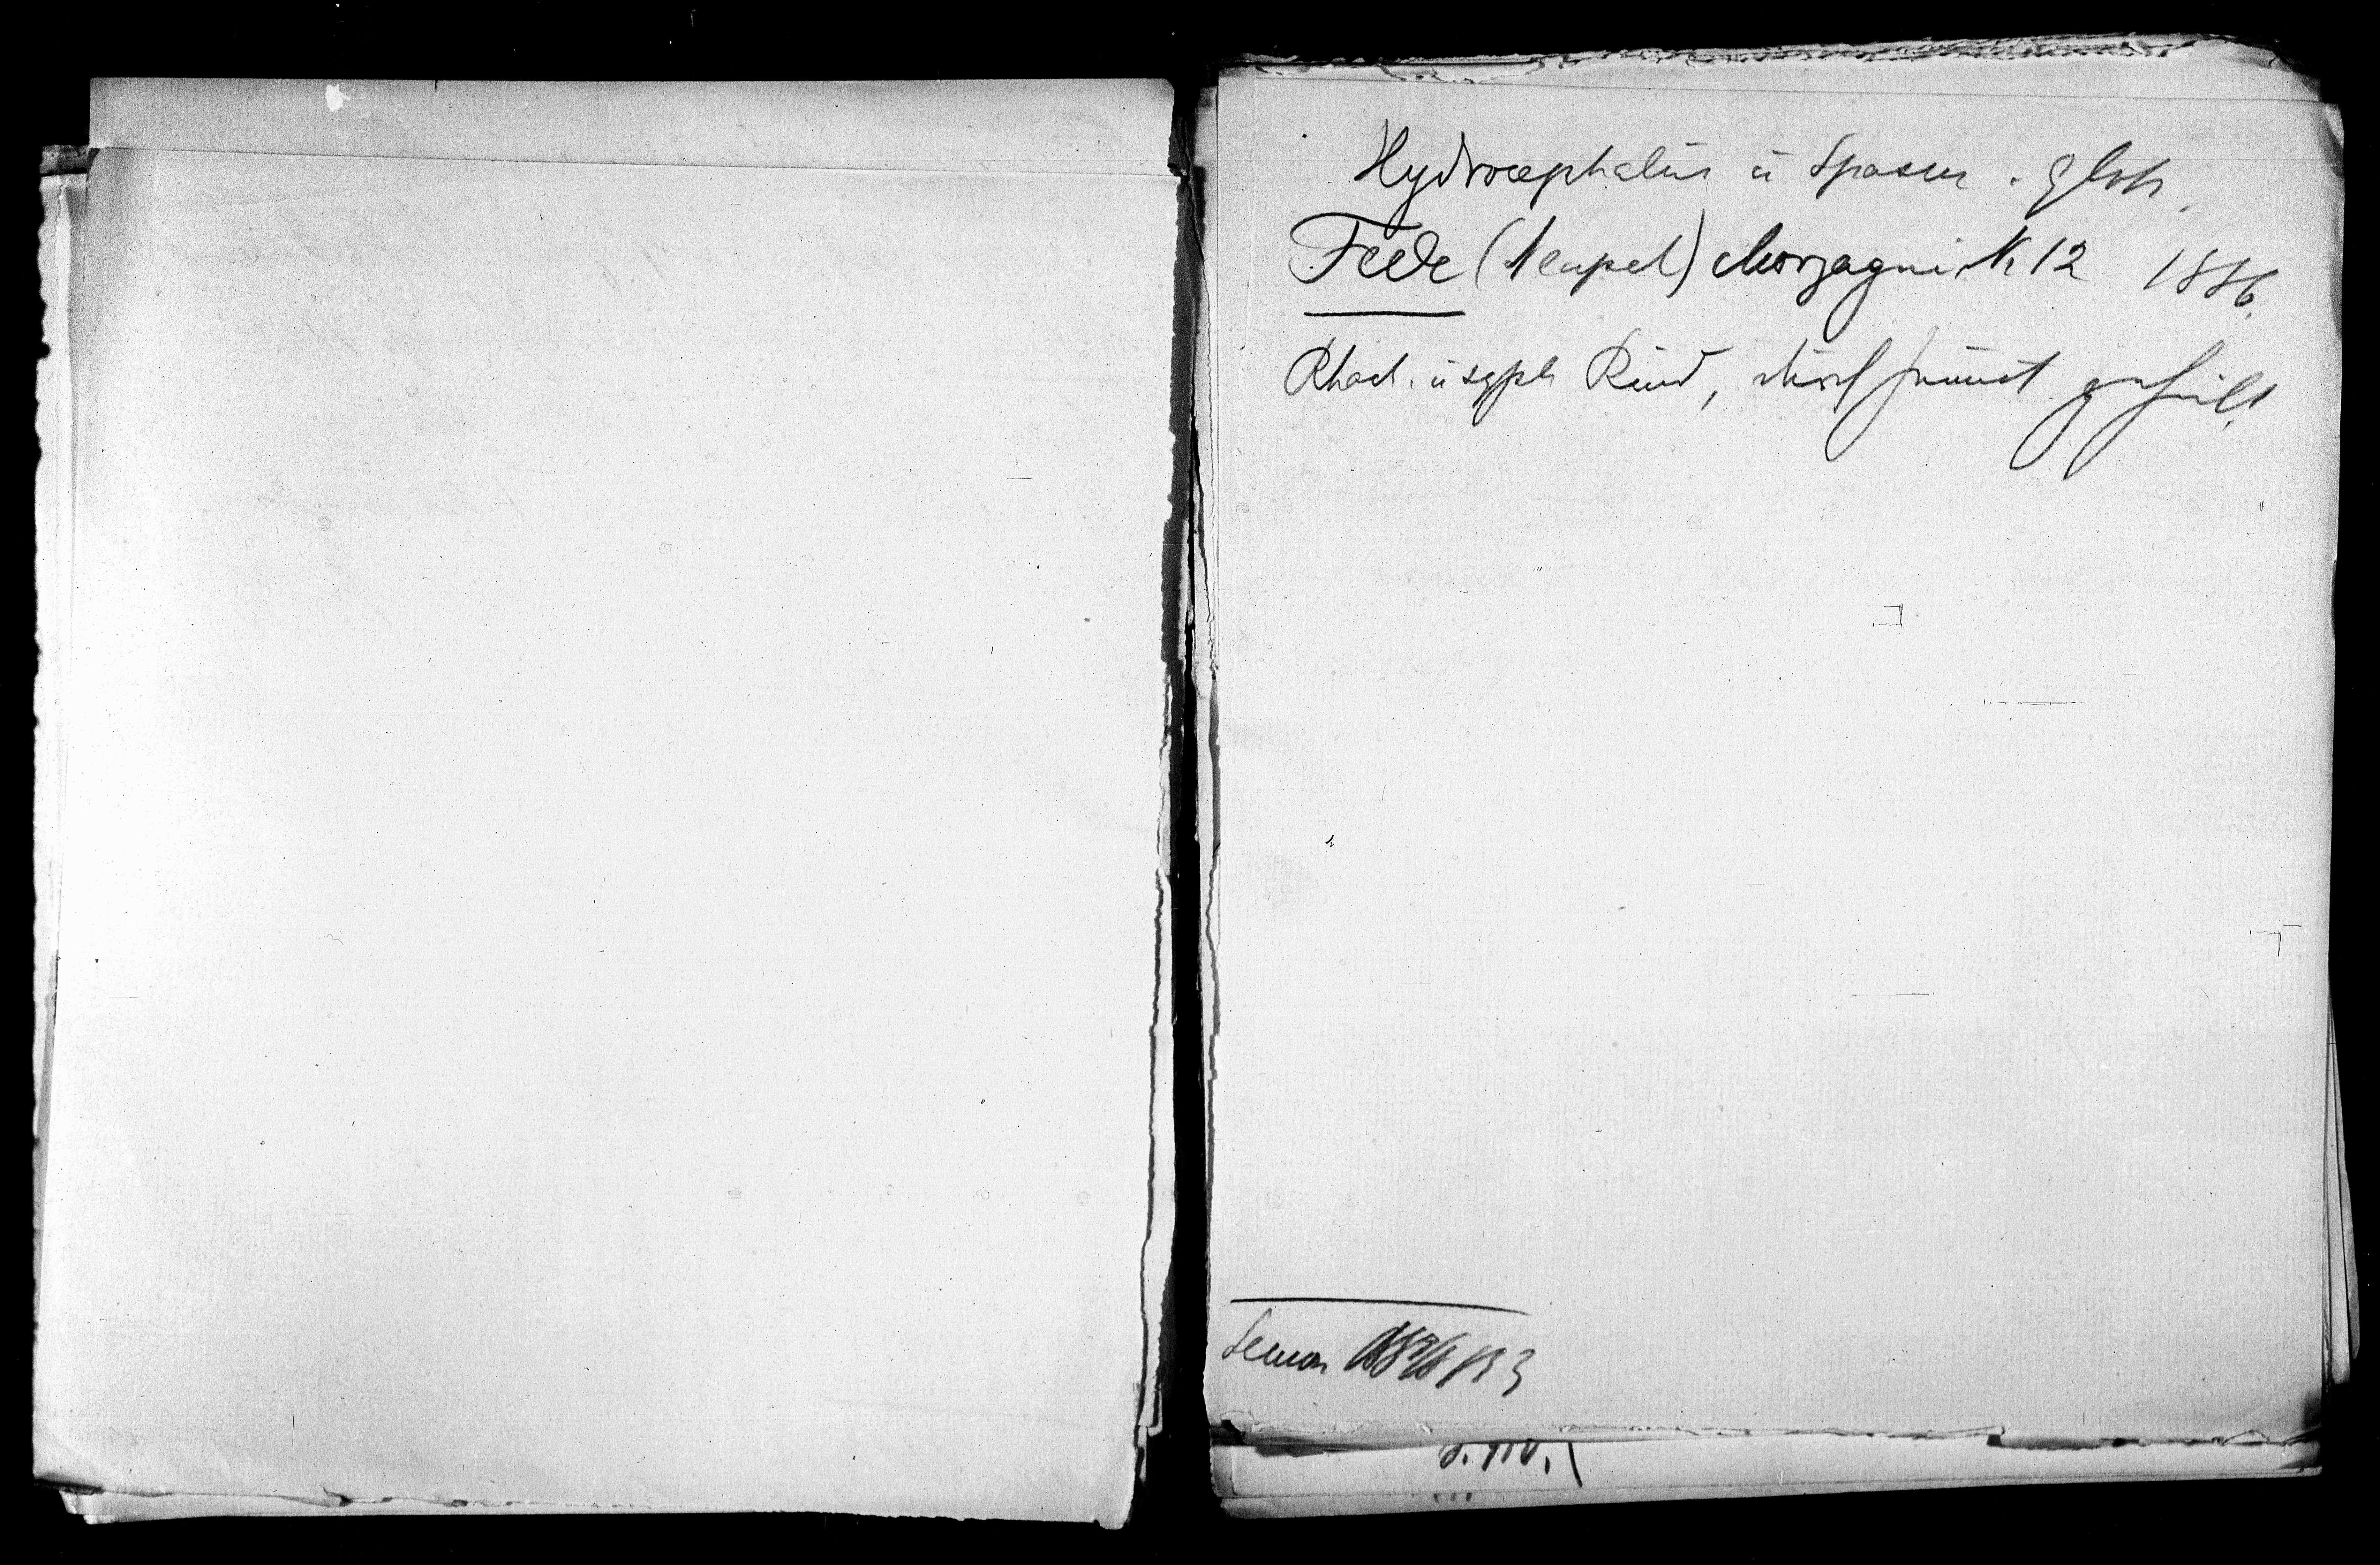 Hydrocephalus u Spasm. glott.
Fede (Neapel) Morgagni Nr 12 1886.
Rhach. u syph Kind, durch geheilt.
Semon 183